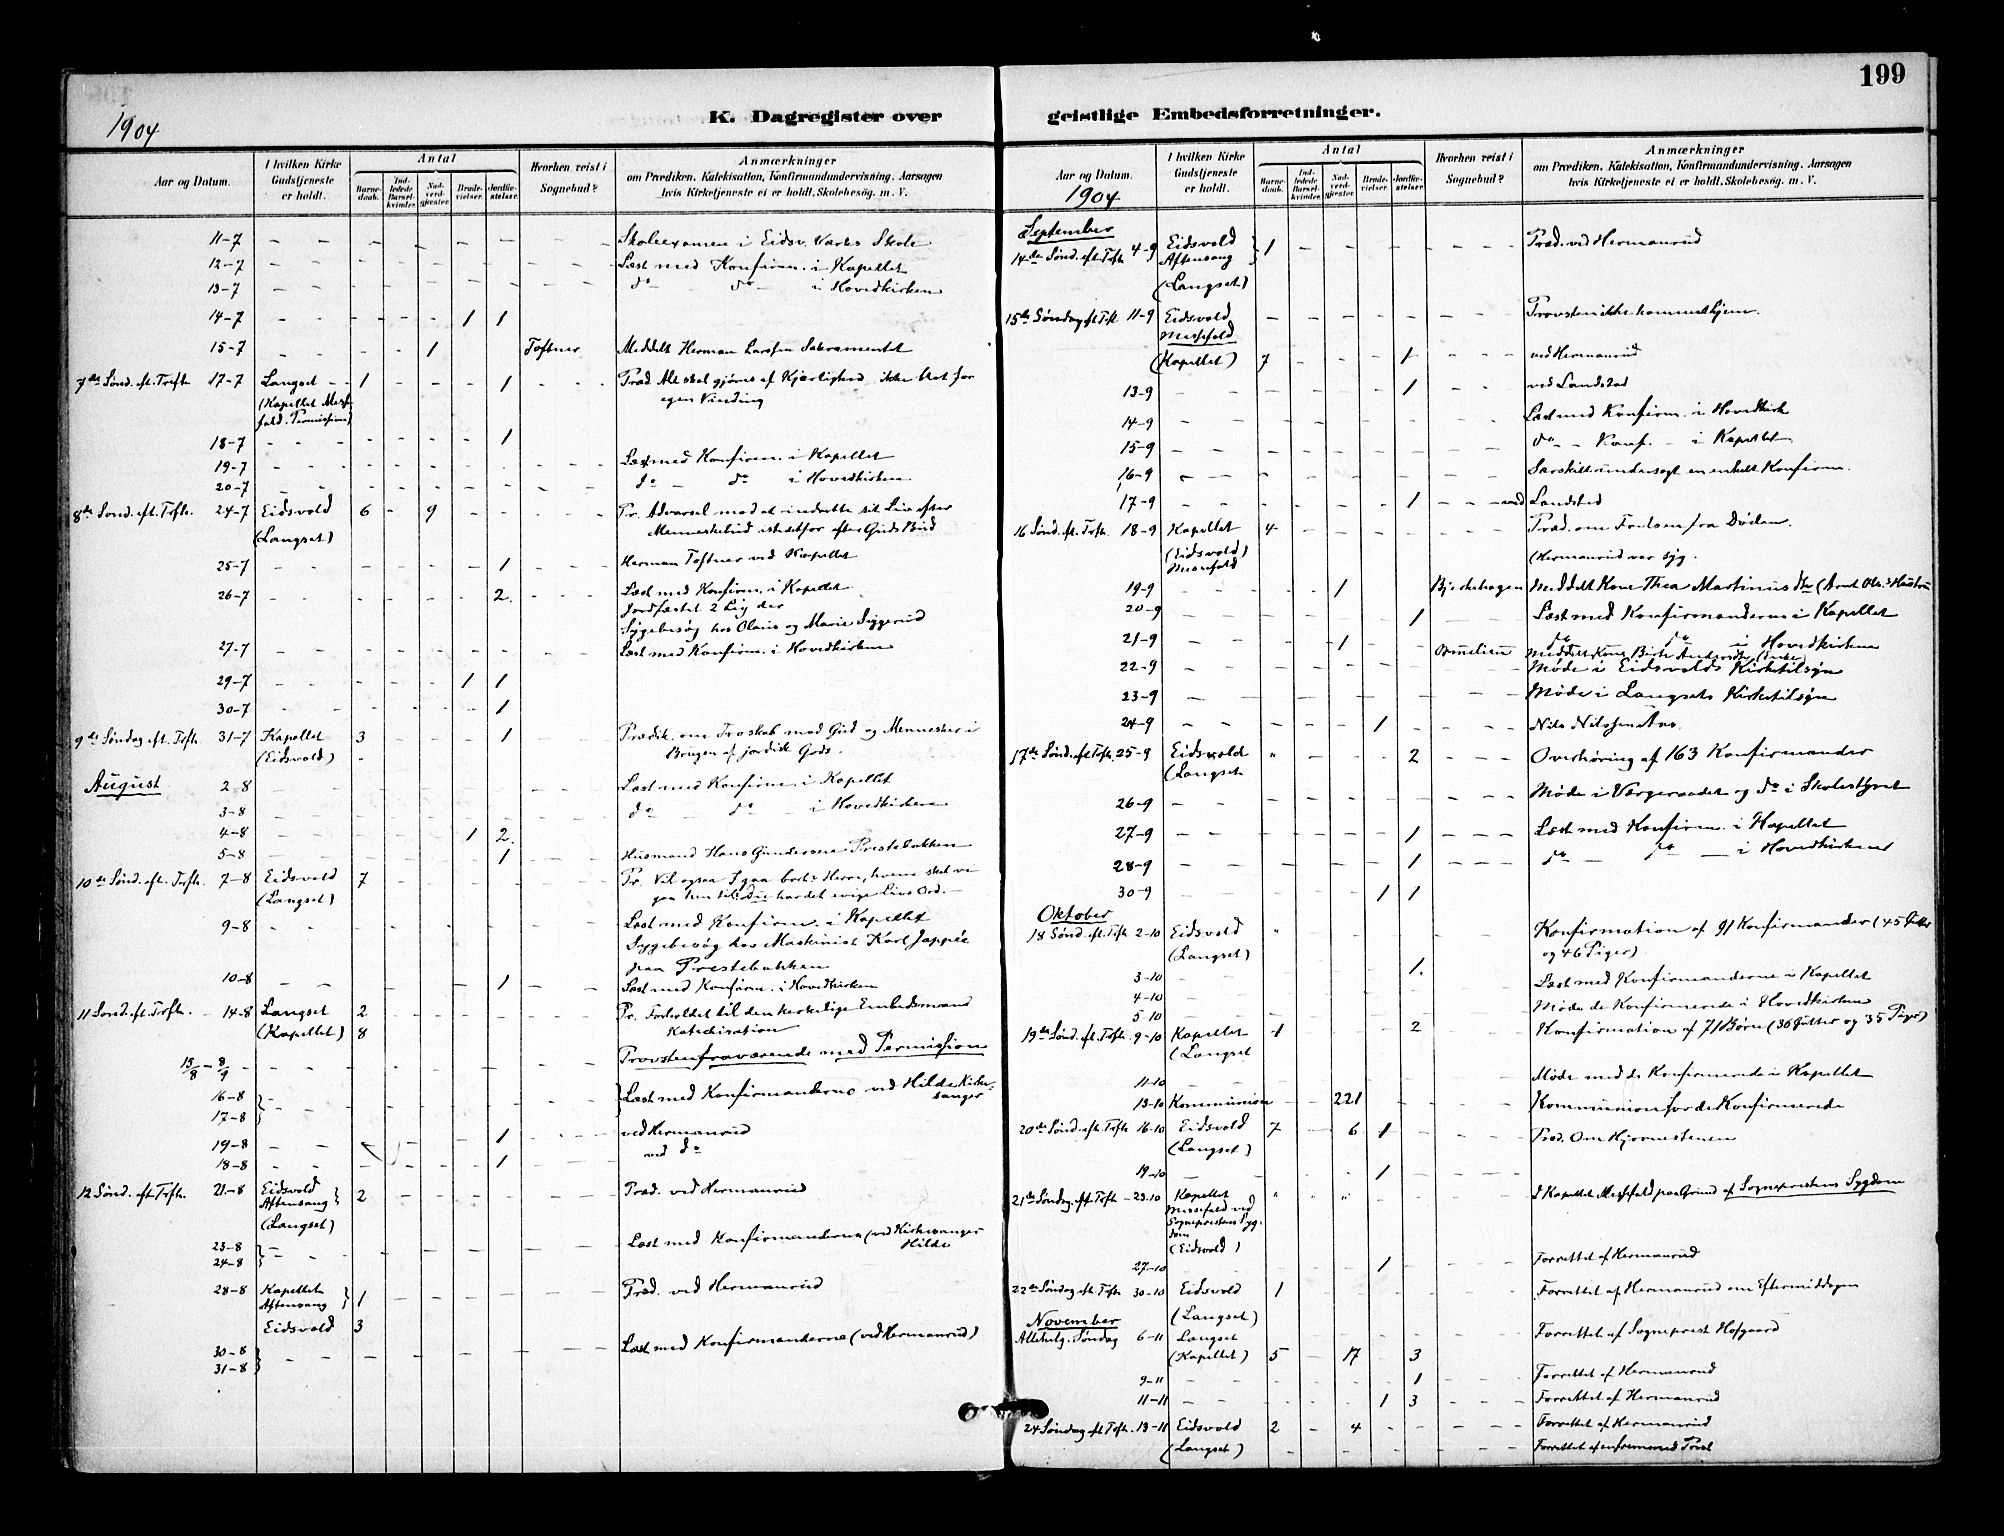 199
K. Dagregister over geistlige Embedsforretninger.
1904
Aar og Datum.
I hvilken Kirke Gudstjeneste er holdt.
Antal
Barnedaab.
Indledede Barselkvinder.
Nadverdgjester.
Brudevielser.
Jordfæstelser.
Hvorhen reist i Sognebud?
Anmærkninger
om Prædiken, Katekisation, Konfirmandundervisning, Aarsagen
hvis Kirketjeneste ei er holdt, Skolebesøg, m. V.
11-7 Skoleexamen i Eidsv. Værks Skole
12-7 Læst med Konfirm. i Kapellet
13-7 do do i Hovedkirken
14-7 1 1
15-7 1 Toftner Meddelt Herman Larsen Sakramentet
7de Sønd. eft. Trefh. 17-7 Langset 1 1 Præd. Alt skal gjøres af Kjærlighed ikke blot for
(Kapellet Messe- egen Vinding
fald. Permission)
18-7 1
19-7 Læst med Konfirm. i Kapellet
20-7 do do i Hovedkirken
8de Sønd. eft. Trefh. 24-7 Eidsvold 6 9 Pr. Advarsel mod at indrette sit Liv efter
(Langset) Menneskebud istedetfor efter Guds Bud
25-7 1 Herman Toftner ved Kapellet
26-7 2 Læst med Konfirm. i Kapellet
Jordfæstet 2 Lig der
Sygebesøg hos Olaus og Marie Syggerud
27-7 Læst med Konfirm. i Hovedkirken
29-7 1 1
30-7 1
9de Søndag eft. Trefh. 31-7 Kapellet 3 1 Prædik. om Troskab mod Gud og Mennesker i
(Eidsvold) Brugen af jordisk Gods.
August 2-8 Læst med Konfirm. i Kapellet
3-8 do do i Hovedkirken
4-8 1 2
5-8 1 Husmand Hans Gundersen Prestebakken
10de Sønd. eft. Trefh. 7-8 Eidsvold 7 Pr. Vil ogsaa I gaa bort? Herre, hvem skal vi
(Langset) gaa hen til? Du har det evige Livs Ord.
9-8 Læst med Konfirm. i Kapellet
Sygebesøg hos Maskinist Karl Jappée
paa Prestebakken
10-8 1 Læst med Konfirm. i Hovedkirken
11 Sønd. eft. Trefh. 14-8 Langset 2 Pr. Forholdet til den kirkelige Embedsmand
(Kapellet) 8 Katechisation
15/8 - 8/9 Provsten fraværende med Permission
16-8 Læst med Konfirmanderne ved Hilde Kirke-
17-8 sanger
19-8 1 ved Hermanrud
18-8 1 ved do
12 Sønd. eft. Trefh. 21-8 Eidsvold 2 Præd. ved Hermanrud
Aftensang
(Langset)
23-8 Læst med Konfirmanderne (ved Kirkesanger
24-8 Hilde
28-8 Kapellet 1 Præd. ved Hermanrud
Aftensang
Eidsvold 3
30-8 Læst med Konfirmanderne (ved Hermanrud)
31-8
Aar og Datum.
1904
I hvilken Kirke Gudstjeneste er holdt.
Antal
Barnedaab.
Indledede Barselkvinder.
Nadverdgjester.
Brudevielser.
Jordfæstelser.
Hvorhen reist i Sognebud?
Anmærkninger
om Prædiken, Katekisation, Konfirmandundervisning, Aarsagen
hvis Kirketjeneste ei er holdt, Skolebesøg, m. V.
September
14de Sønd. eft. Trefh. 4-9 Eidsvold 1 Præd. ved Hermanrud
Aftensang
(Langset)
15de Søndag eft. Trefh. 11-9 Eidsvold Provsten ikke kommet hjem.
Messefald
(Kapellet) 7 1 ved Hermanrud
13-9 1 ved Landstad
14-9 Læst med Konfirm. i Hovedkirk
15-9 do Konf. i Kapellet
16-9 Særskilt undersøgt en enkelt Konfirm.
17-9 1 ved Landstad
16 Sønd. eft. Trefh. 18-9 Kapellet 4 Præd. om Frelsen fra Døden.
(Eidsvold) (Hermanrud var syg.
Messefald
19-9 1 Bjerkehagen Meddelt Kone Thea Martinusdtr
20-9 1 Læst med Konfirmanderne i Kapellet
21-9 1 do do i Hovedkirken
Meddelt Kone
22-9 Møde i Eidsvolds Kirketilsyn
23-9 Møde i Langsets Kirketilsyn
24-9 1 Nils Nilssen
17de Sønd. eft. Trefh. 25-9 Eidsvold " 2 Overhøring af 163 Konfirmander
(Langset
26-9 Møde i Værgeraadet og do i Skolestyret
27-9 1 Læst med Konfirm. i Kapellet
28-9 1 do do i Hovedkirken
30-9 1 1
Oktober
18 Sønd. eft. Trefh. 2-10 Eidsvold " Konfirmation af 91 Konfirmander (45 Gutter
(Langset) og 46 Piger)
3-10 1. Læst med Konfirmanderne i Kapellet
4-10
5-10 Møde de Konfirmerede i Hovedkirken
19de Sønd. eft. Trefh. 9-10 Kapellet 1 2 Konfirmation af 71 Børn (36 Gutter og 35 Piger)
(Langset
11-10 Møde med de Konfirmerede i Kapellet
13-10 Kommunion 221 Kommunion for de Konfirmerede
20de Sønd. eft. Trefh. 16-10 Eidsvold 7 6 1 Præd. Om Hjørnestenen
(Langset)
19-10 1
21de Søndag eft. Trefh. 23-10 Kapellet " " " I Kapellet Messefald paa Grund af Sogneprestens Sygdom
Messefald ved
Sogneprestens Syg-
dom
(Eidsvold)
27-10 1 Forrettet af Hermanrud
22de Søndag eft. Trefh. 30-10 Eidsvold 1 Forrettet af Hermanrud om Eftermiddagen
(Langset)
November
Allehelg. Søndag 6-11 Langset Forrettet af Sogneprest Hofgaard
(Kapellet) 5 17 3
9-11 1 Forrettet af Hermanrud
11-11 1 3 Forrettet af Hermanrud
24 Søndag eft. Trefh. 13-11 Eidsvold 2 4 Forrettet af Hermanrud
(Langset) Forrettet af en fremmed Prest